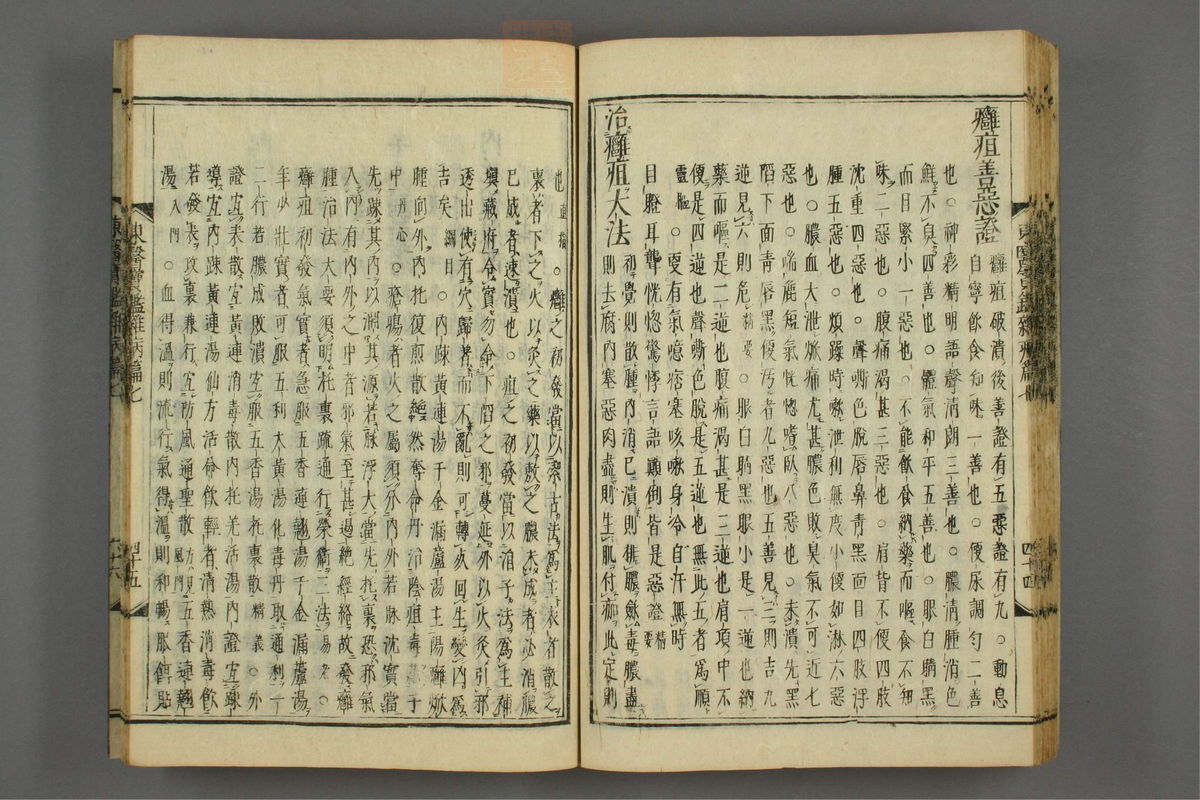 癰疽善惡證 癰疽破潰後善證有五惡證有九○動息
自寧飮食知味一善也○便尿調勻二善
也○神彩精明語聲清朗三善也○膿清腫消色
鮮不臭四善也○體氣和平五善也○眼白睛黑
而目緊小一惡也○不能飮食納藥而嘔食不知
味二惡也○腹痛渴甚三惡也○肩背不便四肢
沈重四惡也○聲嘶色脫唇鼻青黑面目四肢浮
腫五惡也○煩躁時嗽泄利無度小便如淋六惡
也○膿血大泄焮痛尤甚膿色敗臭氣不可近七
惡也○喘麁短氣恍惚嗜臥八惡也○未潰先黑
陷下面青唇黑便汚者九惡也五善見三則吉九
逆見六則危 精要○眼白睛黑眼小是一逆也納
藥而嘔是二逆也腹痛渴甚是三逆也肩項中不
便是四逆也聲嘶色脫是五逆也無此五者爲順
靈樞○更有氣噫痞塞咳嗽身冷自汗無時
目瞪耳聾恍惚驚悸言語顚倒皆是惡證 精要
治癰疽大法 初覺則散腫內消已潰則排膿斂毒膿盡
則去腐內塞惡肉盡則生肌付痂此定則
也 直指○癰之初發當以 古法爲主表者散之
裏者下之火以灸之藥以敷之膿未成者必消膿
已成者速潰也○疽之初發當以涓子法爲主補
塡藏府令實勿令下陷之邪蔓延外以火灸引邪
透出使有穴歸著而不亂則可轉死回生變凶爲
吉矣 綱目○內踈黃連湯千金漏蘆湯主陽癰焮
腫向外內托復煎散 然奪命丹治陰疽毒 于
中 丹心○瘡瘍者火之屬須分內外若脉沈實當
先踈其內以淵其源若脉浮大當先托裏恐邪氣
入內有內外之中者邪氣至甚遏絶經絡故發癰
腫治法大要須明托裏疏通行榮衛三法 易老○
癰疽初發氣實者急服五香連翹湯千金漏蘆湯
年少壯實者可服五利大黃湯化毒丹取通利一
二行若膿成敗潰宜服五香湯托裏散 精義○外
證宜表散宜黃連消毒散內托羌活湯內證宜踈
導宜內踈黃連湯仙方活命飮輕者清熱消毒飮
若發表攻裏兼行宜防風通聖散 方見風門五香連翹
湯 入門○血得溫則流行氣得溫則和暢服餌貼
東醫寶鑑雜病篇七
四十四
東醫寶鑑雜病篇七
四十五
六